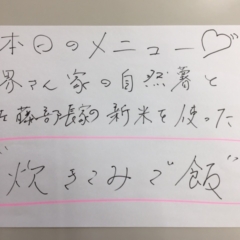 本日のメニュー♡
界さん家の自然薯と
佐藤部長家の新米を使った
"炊きこみご飯"